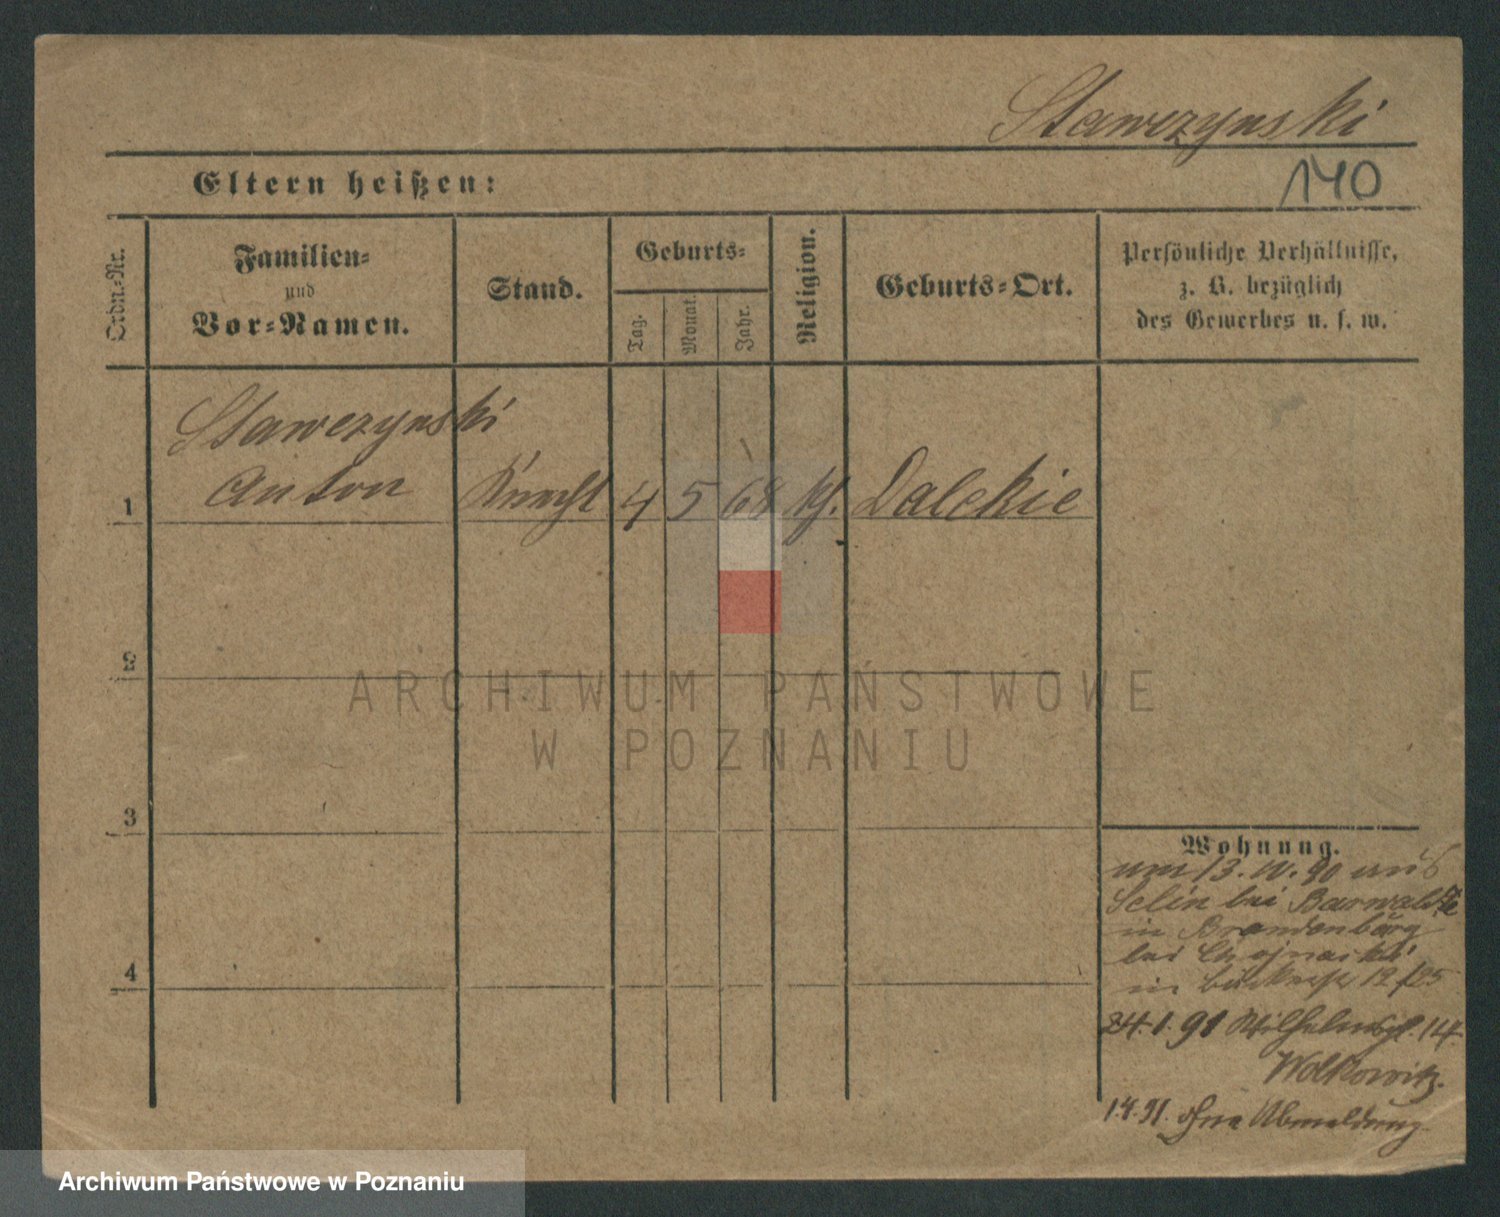 Stawczynski
140
Eltern heißen:
Ordn.-Nr.
Familien-
und
Vor-Namen.
Stand.
Geburts-
Tag.
Monat.
Jahr.
Religion.
Geburts-Ort.
Persönliche Verhältnisse,
z. B. bezüglich
des Gewerbes u. s. w.
Stawczynski
1 Anton Knecht 4 5 68 kth. Dalekie
2
3
4
Wohnung.
13. 90 aus
bei Bärwalde
in Brandenburg
bei Chojnacki
in 12/25
24.1.91 Wilhelmspl. 14
Wolkowitz.
1.4.91. ohne Abmeldung
ARCHIWUM PAŃSTWOWE
W POZNANIU
Archiwum Państwowe w Poznaniu